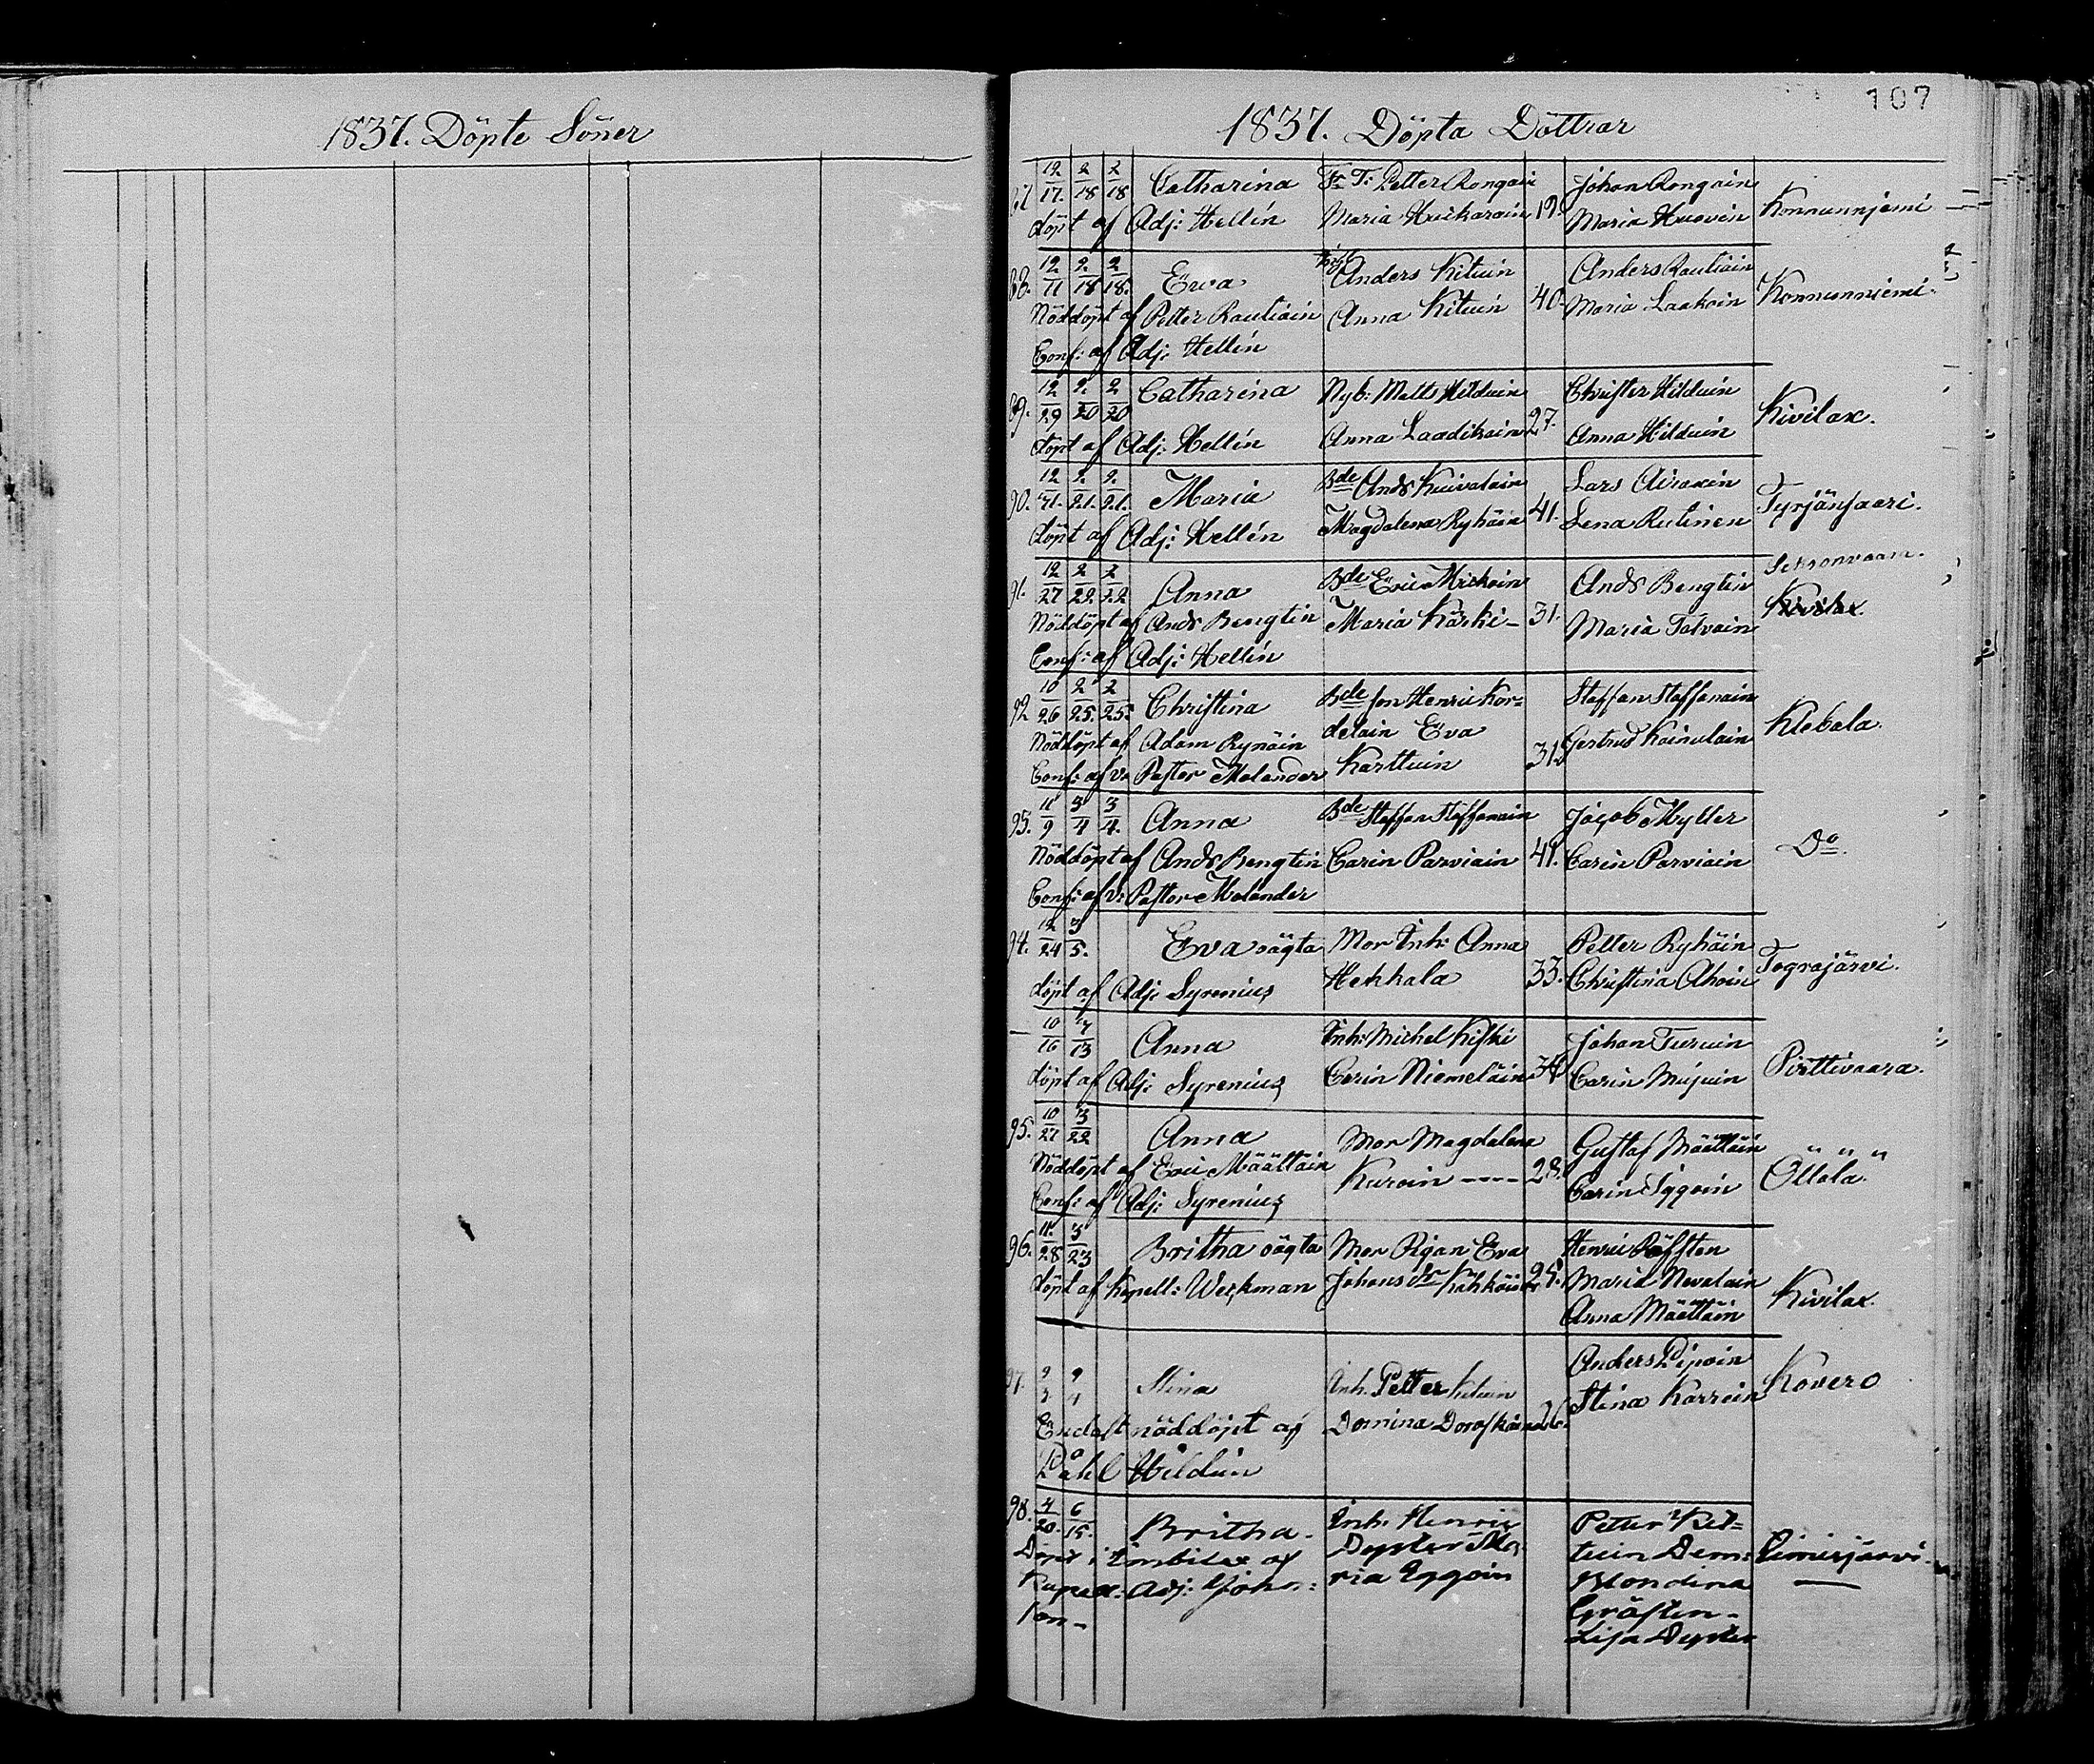 1837. Döpte Söner
107
1837. Döpta Döttrar
87. 12/17. 2/18 2/18 Catharina Petter Rongain Johan Rongain
döpt af Adj: Hellén Maria Huikarain 19. Maria Huovin Konnunniemi
88. 12/11 2/18 2/18. Eva Anders Kituin Anders Rautiain
Nöddöpt af Petter Rautiain Anna Kituin 40. Maria Laakoin Konnunniemi
Conf: af Adj: Hellén
89. 12/29 2/20 2/20 Catharina Nyb: Matts Hilduin Christer Hilduin Kivilax.
döpt af Adj: Hellén Anna Laadikain 27. Anna Hilduin
90. 12/21. 2/21. 2/21. Maria Bde Ands Kuivalain Lars Airaxin
döpt af Adj: Hellén Magdalena Ryhäin 41. Lena Rutinen Tyrjänsaari.
Sissonvaara.
91. 12/27 2/22 2/22 Anna Bde Eric Mickoin Ands Bengtin Kivilax.
Nöddöpt af Ands Bengtin Maria Kärki – 31. Maria Tolvain
Conf: af Adj: Hellén
92 10/26 2/25. 2/25. Christina Bde son Henric Kor= Staffan Staffanain
Nöddöpt af Adam Rynäin delain Eva Gertrud Kainulain Klebala.
Conf: af v: Pastor Molander Karttuin 31.
93. 11/9 3/4 3/4. Anna Bde Staffan Staffanain Jacob Myller
Nöddöpt af Ands Bengtin Carin Parviain 41. Carin Parviain Do.
Conf: af v: Pastor Molander
94. 12/24 3/5. Eva oägta Mor Inh: Anna Petter Ryhäin
döpt af Adj: Syrenius Hekkala 33. Christina Ahoin Tograjärvi.
– 10/16 3/13 Anna Inh: Michel Kiski Johan Turuin
döpt af Adj: Syrenius Carin Niemeläin 34 Carin Mujuin Pirttivaara.
95. 10/27 3/22 Anna Mor Magdalena Gustaf Määttäin
Nöddöpt af Eric Määttäin Kuroin ---- 28. Carin Iggoin Öllölä.
Conf: af Adj: Syrenius
96. 11/28 3/23 Britha oägta Mor Pigan Eva Henric
döpt af Kapell: Weckman Johans dr Kähköin 25. Maria Nevalain
Anna Määttäin Kivilax.
97. 9/3 9/4 Stina Inh. Petter Kituin Anders Piipoin Kovero
Endast nöddöpt af Domina Stina Karrein
Påhl Hilduin
98. 4/20. 6/15. Britha. Inh. Henric Petter Kit=
Döpt i Imbilax af Dypter Ma tuin Dem:
Kaped: Adj: Johns= ria Iggoin Blondina
son – Gröften –
Lisa Dypter